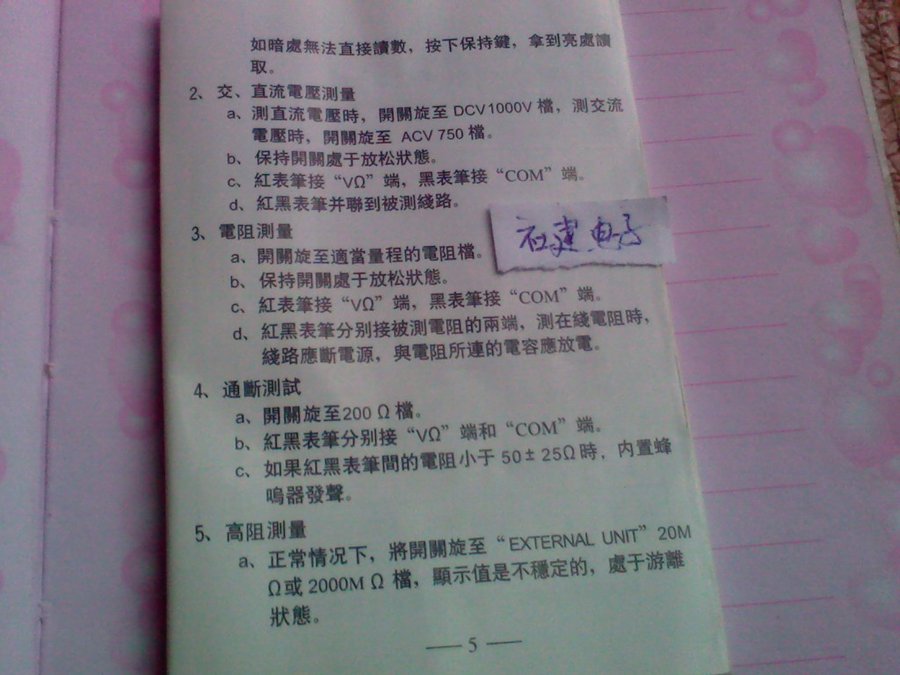 如暗處無法直接讀數，按下保持鍵，拿到亮處讀
取。
2、交、直流電壓測量
a、測直流電壓時，開關旋至 DCV1000V 檔，測交流
電壓時，開關旋至 ACV 750 檔。
b、保持開關處于放松狀態。
c、紅表筆接“VΩ”端，黑表筆接“COM”端。
d、紅黑表筆并聯到被測綫路。
3、電阻測量
a、開關旋至適當量程的電阻檔。
b、保持開關處于放松狀態。
c、紅表筆接“VΩ”端，黑表筆接“COM”端。
d、紅黑表筆分别接被測電阻的兩端，測在綫電阻時，
綫路應斷電源，與電阻所連的電容應放電。
4、通斷測試
a、開關旋至200 Ω 檔。
b、紅黑表筆分别接“VΩ”端和“COM”端。
c、如果紅黑表筆間的電阻小于 50± 25Ω 時，内置蜂
鳴器發聲。
5、高阻測量
a、正常情况下，將開關旋至“EXTERNAL UNIT”20M
Ω或 2000M Ω 檔，顯示值是不穩定的，處于游離
狀態。
— 5 —
电子